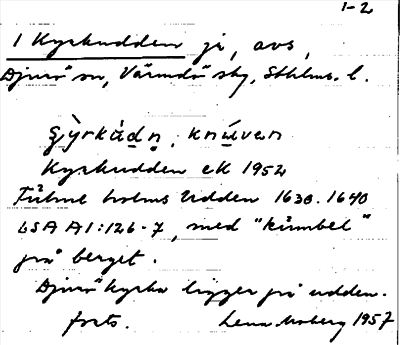 1-2
1 Kyrkudden js, avs,
Djurö sn, Värmdö skg, Sthlms. l.
gy̆rkùdn, knúven
Kyrkudden eK 1952
holms Udden 1630. 1640
LSA A1:126-7, med "kummel"
på berget.
Djurö kyrka ligger på udden.
forts. Lena Moberg 1957